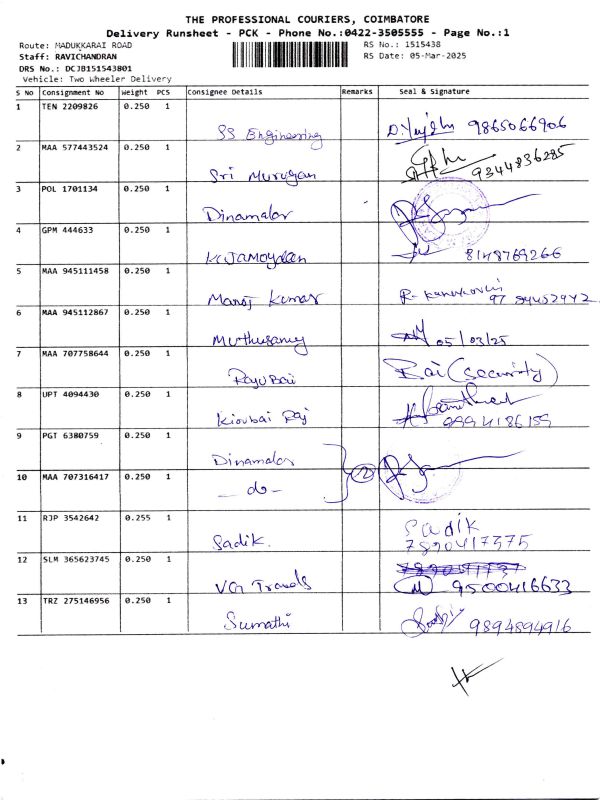 THE PROFESSIONAL COURIERS, COIMBATORE
Delivery Runsheet - PCK - Phone No.:0422-3505555 - Page No.:1
Route: MADUKKARAI ROAD RS No.: 1515438
Staff: RAVICHANDRAN RS Date: 05-Mar-2025
DRS No.: DCJB151543801
Vehicle: Two Wheeler Delivery
S No Consignment No Weight PCS Consignee Details Remarks Seal & Signature
1 TEN 2209826 0.250 1
SS Engineering 9865066906
2 MAA 577443524 0.250 1
Sri Murugan 9344836285
3 POL 1701134 0.250 1
Dinamalar
4 GPM 444633 0.250 1
8148769266
5 MAA 945111458 0.250 1
Manoj Kumar
6 MAA 945112867 0.250 1
Muthusamy 05/03/25
7 MAA 707758644 0.250 1
Rajubai Bai (security)
8 UPT 4094430 0.250 1
Raj 9994186159
9 PGT 6380759 0.250 1
Dinamalar
10 MAA 707316417 0.250 1
- do - 2
11 RJP 3542642 0.255 1
Sadik
Sadik. 7890417375
12 SLM 365623745 0.250 1
VG Travels 9500416633
13 TRZ 275146956 0.250 1
Sumathi 9894894916